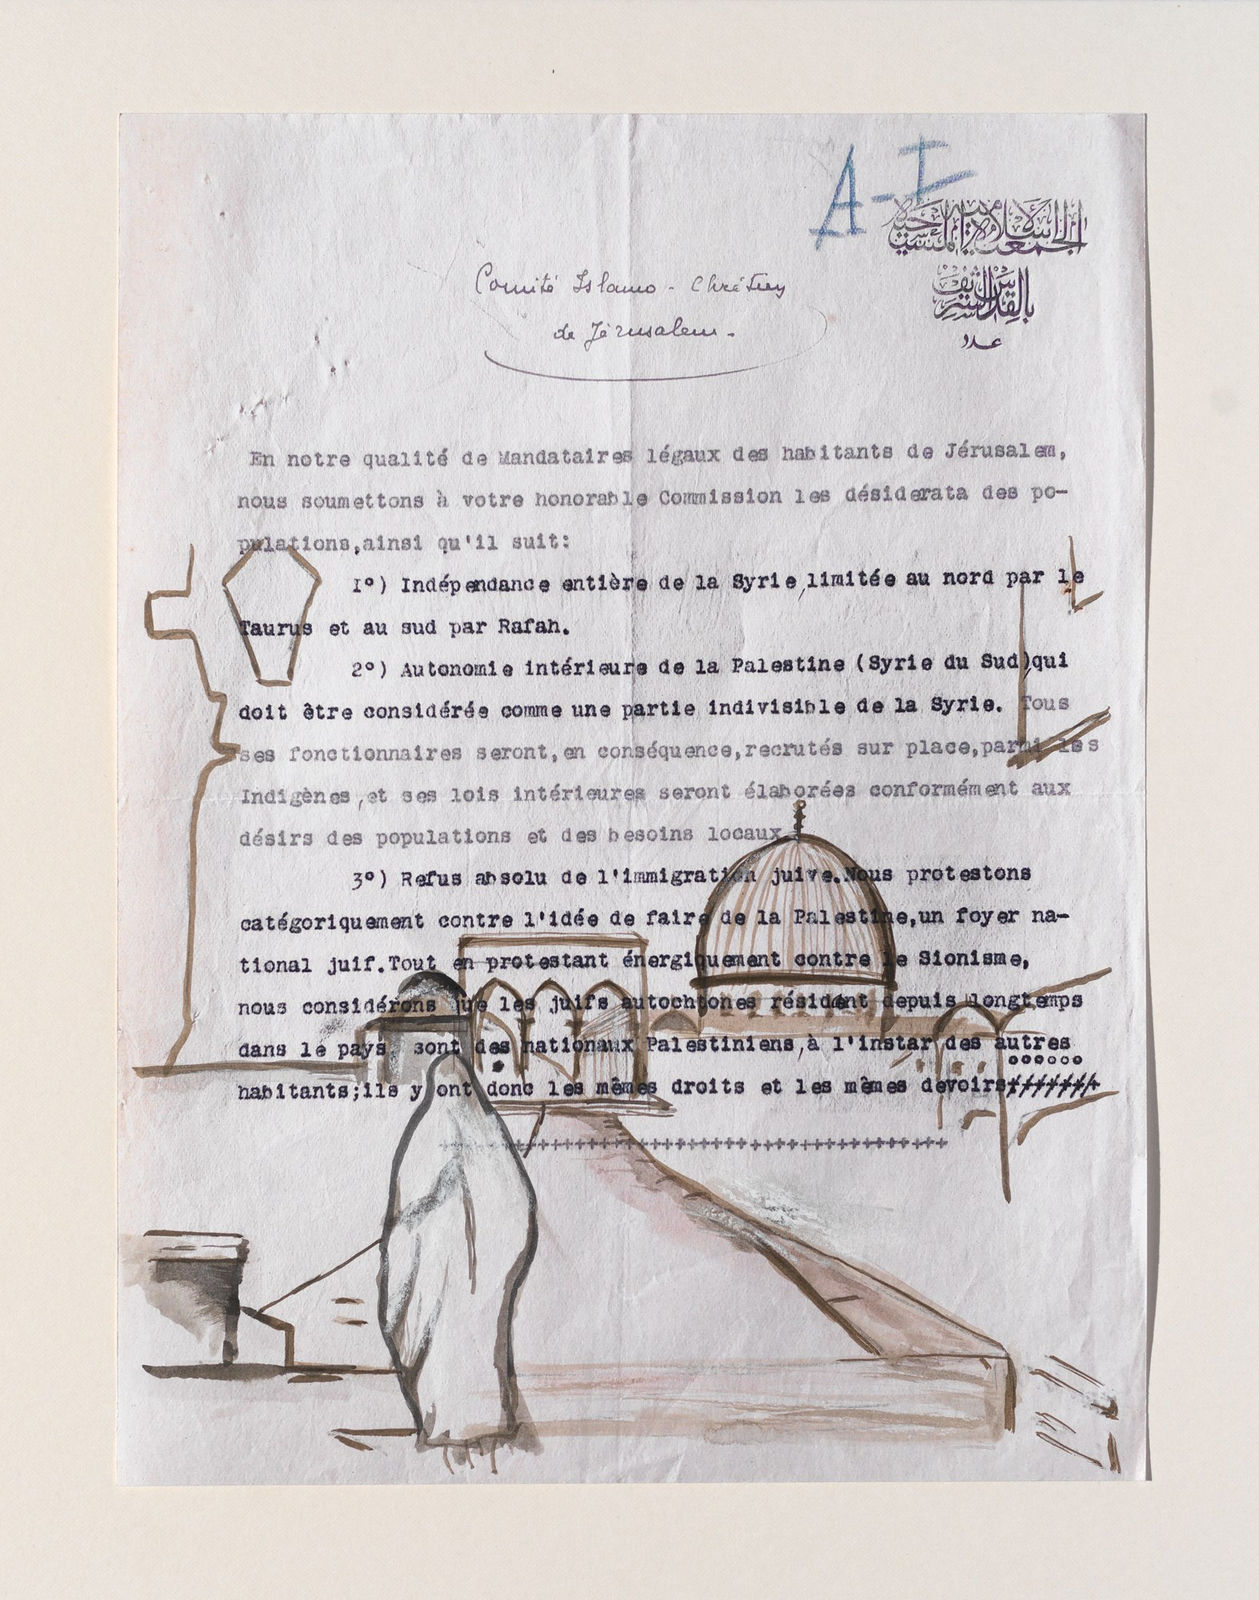 A-I
الجمعية الاسلامية المسيحية
بالقدس الشريف
عدد
Comité Islamo - Chrétien
de Jérusalem -
En notre qualité de Mandataires légaux des habitants de Jérusalem,
nous soumettons à votre honorable Commission les désiderata des po-
pulations,ainsi qu'il suit:
I°) Indépendance entière de la Syrie,limitée au nord par le
Taurus et au sud par Rafah.
2°) Autonomie intérieure de la Palestine (Syrie du Sud)qui
doit être considérée comme une partie indivisible de la Syrie. Tous
ses fonctionnaires seront,en conséquence,recrutés sur place,parmi les
Indigènes,et ses lois intérieures seront élaborées conformément aux
désirs des populations et des besoins locaux.
3°) Refus absolu de l'immigration juive.Nous protestons
catégoriquement contre l'idée de faire de la Palestine,un foyer na-
tional juif.Tout en protestant énergiquement contre le Sionisme,
nous considérons que les juifs autochtones résident depuis longtemps
dans le pays sont des nationaux Palestiniens,à l'instar des autres
habitants;ils y ont donc les mêmes droits et les mêmes devoirs